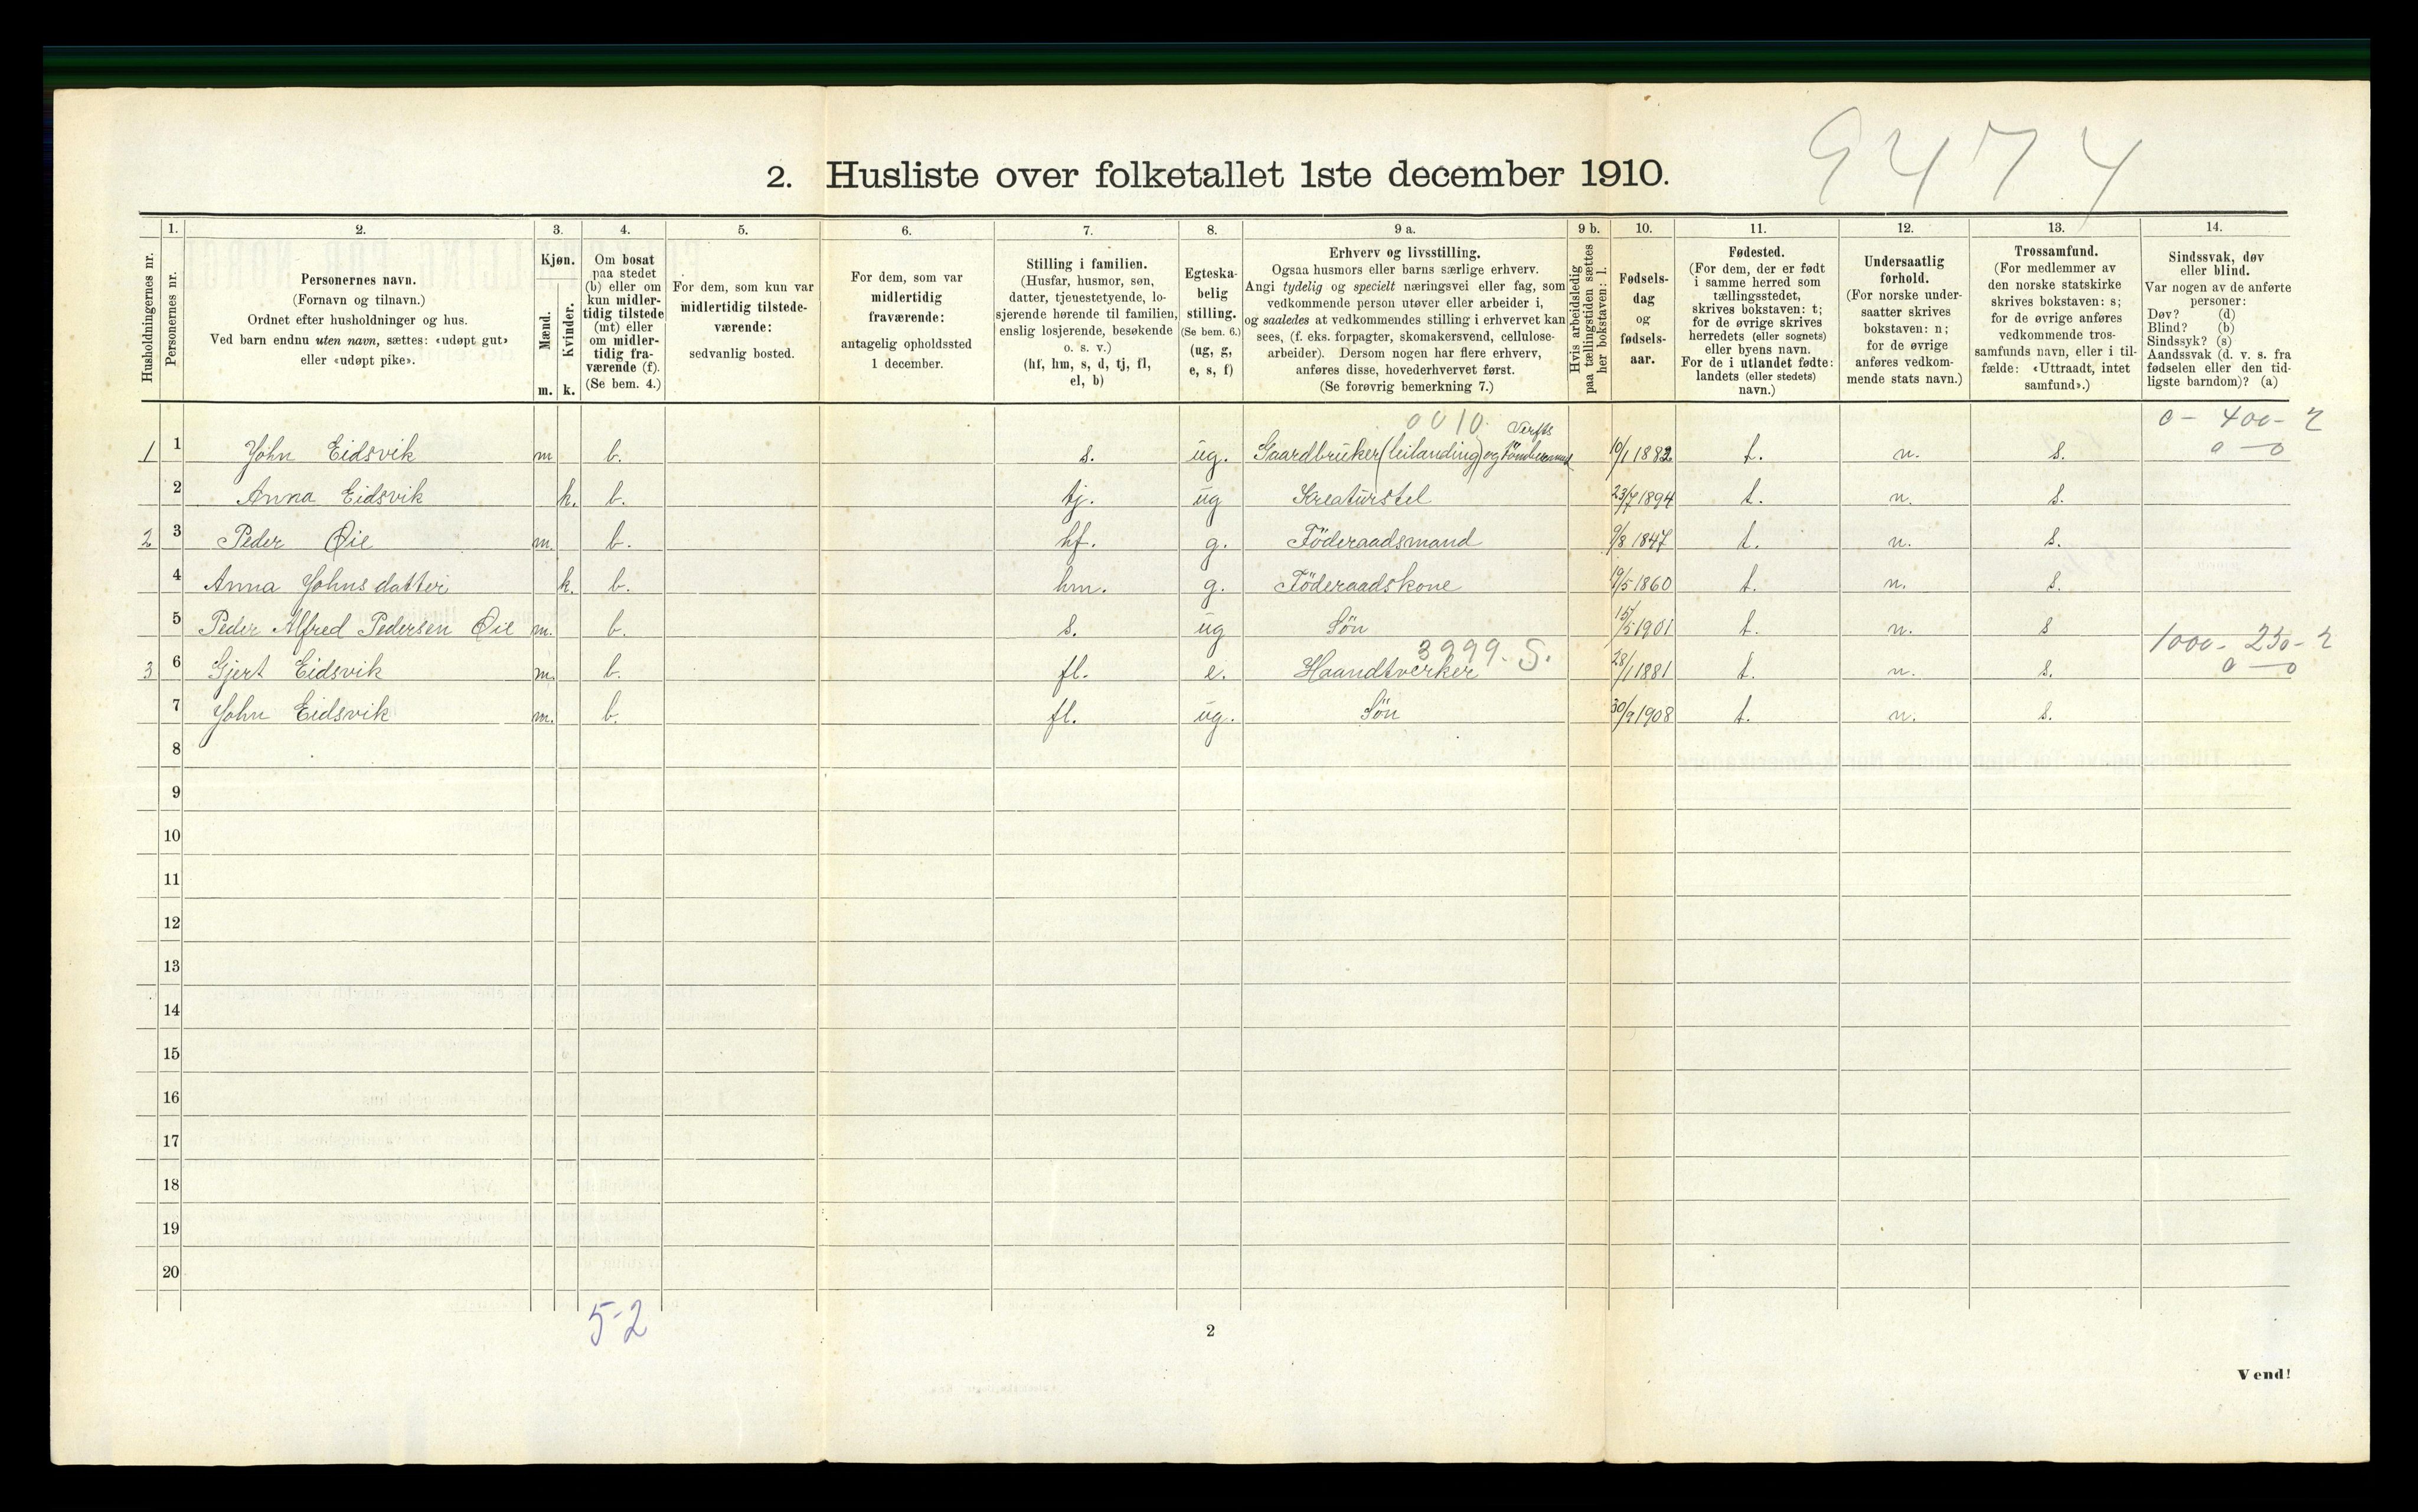 9474
2. Husliste over folketallet 1ste december 1910.
Husholdningernes nr.
1.
Personernes nr.
2.
Personernes navn.
(Fornavn og tilnavn.)
Ordnet efter husholdninger og hus.
Ved barn endnu uten navn, sættes: «udøpt gut»
eller «udøpt pike».
3.
Kjøn.
Mænd.
m.
Kvinder.
k.
4.
Om bosat
paa stedet
(b) eller om
kun midler-
tidig tilstede
(mt) eller
om midler-
tidig fra-
værende (f).
(Se bem. 4.)
5.
For dem, som kun var
midlertidig tilstede-
værende:
sedvanlig bosted.
6.
For dem, som var
midlertidig
fraværende:
antagelig opholdssted
1 december.
7.
Stilling i familien.
(Husfar, husmor, søn,
datter, tjenestetyende, lo-
sjerende hørende til familien,
enslig losjerende, besøkende
o. s. v.)
(hf, hm, s, d, tj, fl,
el, b)
8.
Egteska-
belig
stilling.
(Se bem. 6.)
(ug, g,
e, s, f)
9 a.
Erhverv og livsstilling.
Ogsaa husmors eller barns særlige erhverv.
Angi tydelig og specielt næringsvei eller fag, som
vedkommende person utøver eller arbeider i,
og saaledes at vedkommendes stilling i erhvervet kan
sees, (f. eks. forpagter, skomakersvend, cellulose-
arbeider). Dersom nogen har flere erhverv,
anføres disse, hovederhvervet først.
(Se forøvrig bemerkning 7.)
9 b.
Hvis arbeidsledig
paa tællingstiden sættes
her bokstaven: l.
10.
Fødsels-
dag
og
fødsels-
aar.
11.
Fødested.
(For dem, der er født
i samme herred som
tællingsstedet,
skrives bokstaven: t;
for de øvrige skrives
herredets (eller sognets)
eller byens navn.
For de i utlandet fødte:
landets (eller stedets)
navn.)
12.
Undersaatlig
forhold.
(For norske under-
saatter skrives
bokstaven: n;
for de øvrige
anføres vedkom-
mende stats navn.)
13.
Trossamfund.
(For medlemmer av
den norske statskirke
skrives bokstaven: s;
for de øvrige anføres
vedkommende tros-
samfunds navn, eller i til-
fælde: «Uttraadt, intet
samfund».)
14.
Sindssvak, døv
eller blind.
Var nogen av de anførte
personer:
Døv? (d)
Blind? (b)
Sindssyk? (s)
Aandssvak (d. v. s. fra
fødselen eller den tid-
ligste barndom)? (a)
0010. Verfts 0 - 400 - 2
0 - 0
1 1 John Eidsvik m b. s. ug. Gaardbruker (leilanding) og 10/1 1882 t. n. s.
2 Anna Eidsvik k. b. tj. ug Kreaturstel 23/7 1894 t. n. s.
2 3 Peder Øie m. b. hf. g. Föderaadsmand 9/8 1847 t. n. s.
4 Anna Johnsdatter k. b. hm. g. Föderaadskone 19/5 1860 t. n. s.
5 Peder Alfred Pedersen Øie m. b. s. ug Sön 15/5 1901 t. n. s
3999. S. 1000 - 250 - 2
0 - 0
3 6 Gjert Eidsvik m. b. fl. e. Haandtverker 28/1 1881 t. n. s.
7 John Eidsvik m. b. fl. ug. Sön 30/9 1908 t. n. s.
8
9
10
11
12
13
14
15
16
17
18
19
20
5-2
2
Vend!